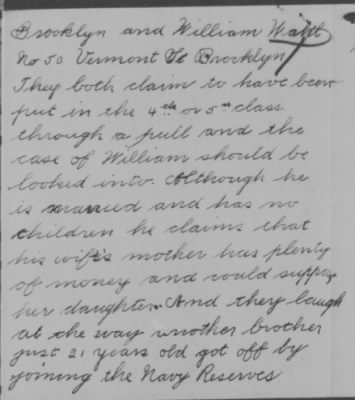 Brooklyn and William Watt
No 50 Vermont St Brooklyn
They both claim to have been
put in the 4th or 5th class
through a pull and the
case of William should be
looked into. Although he
is married and has no
children he claims that
his wife's mother has plenty
of money and could suppor
her daughter. And they laugh
at the way another brother
just 21 years old got off by
joining the Navy Reserves